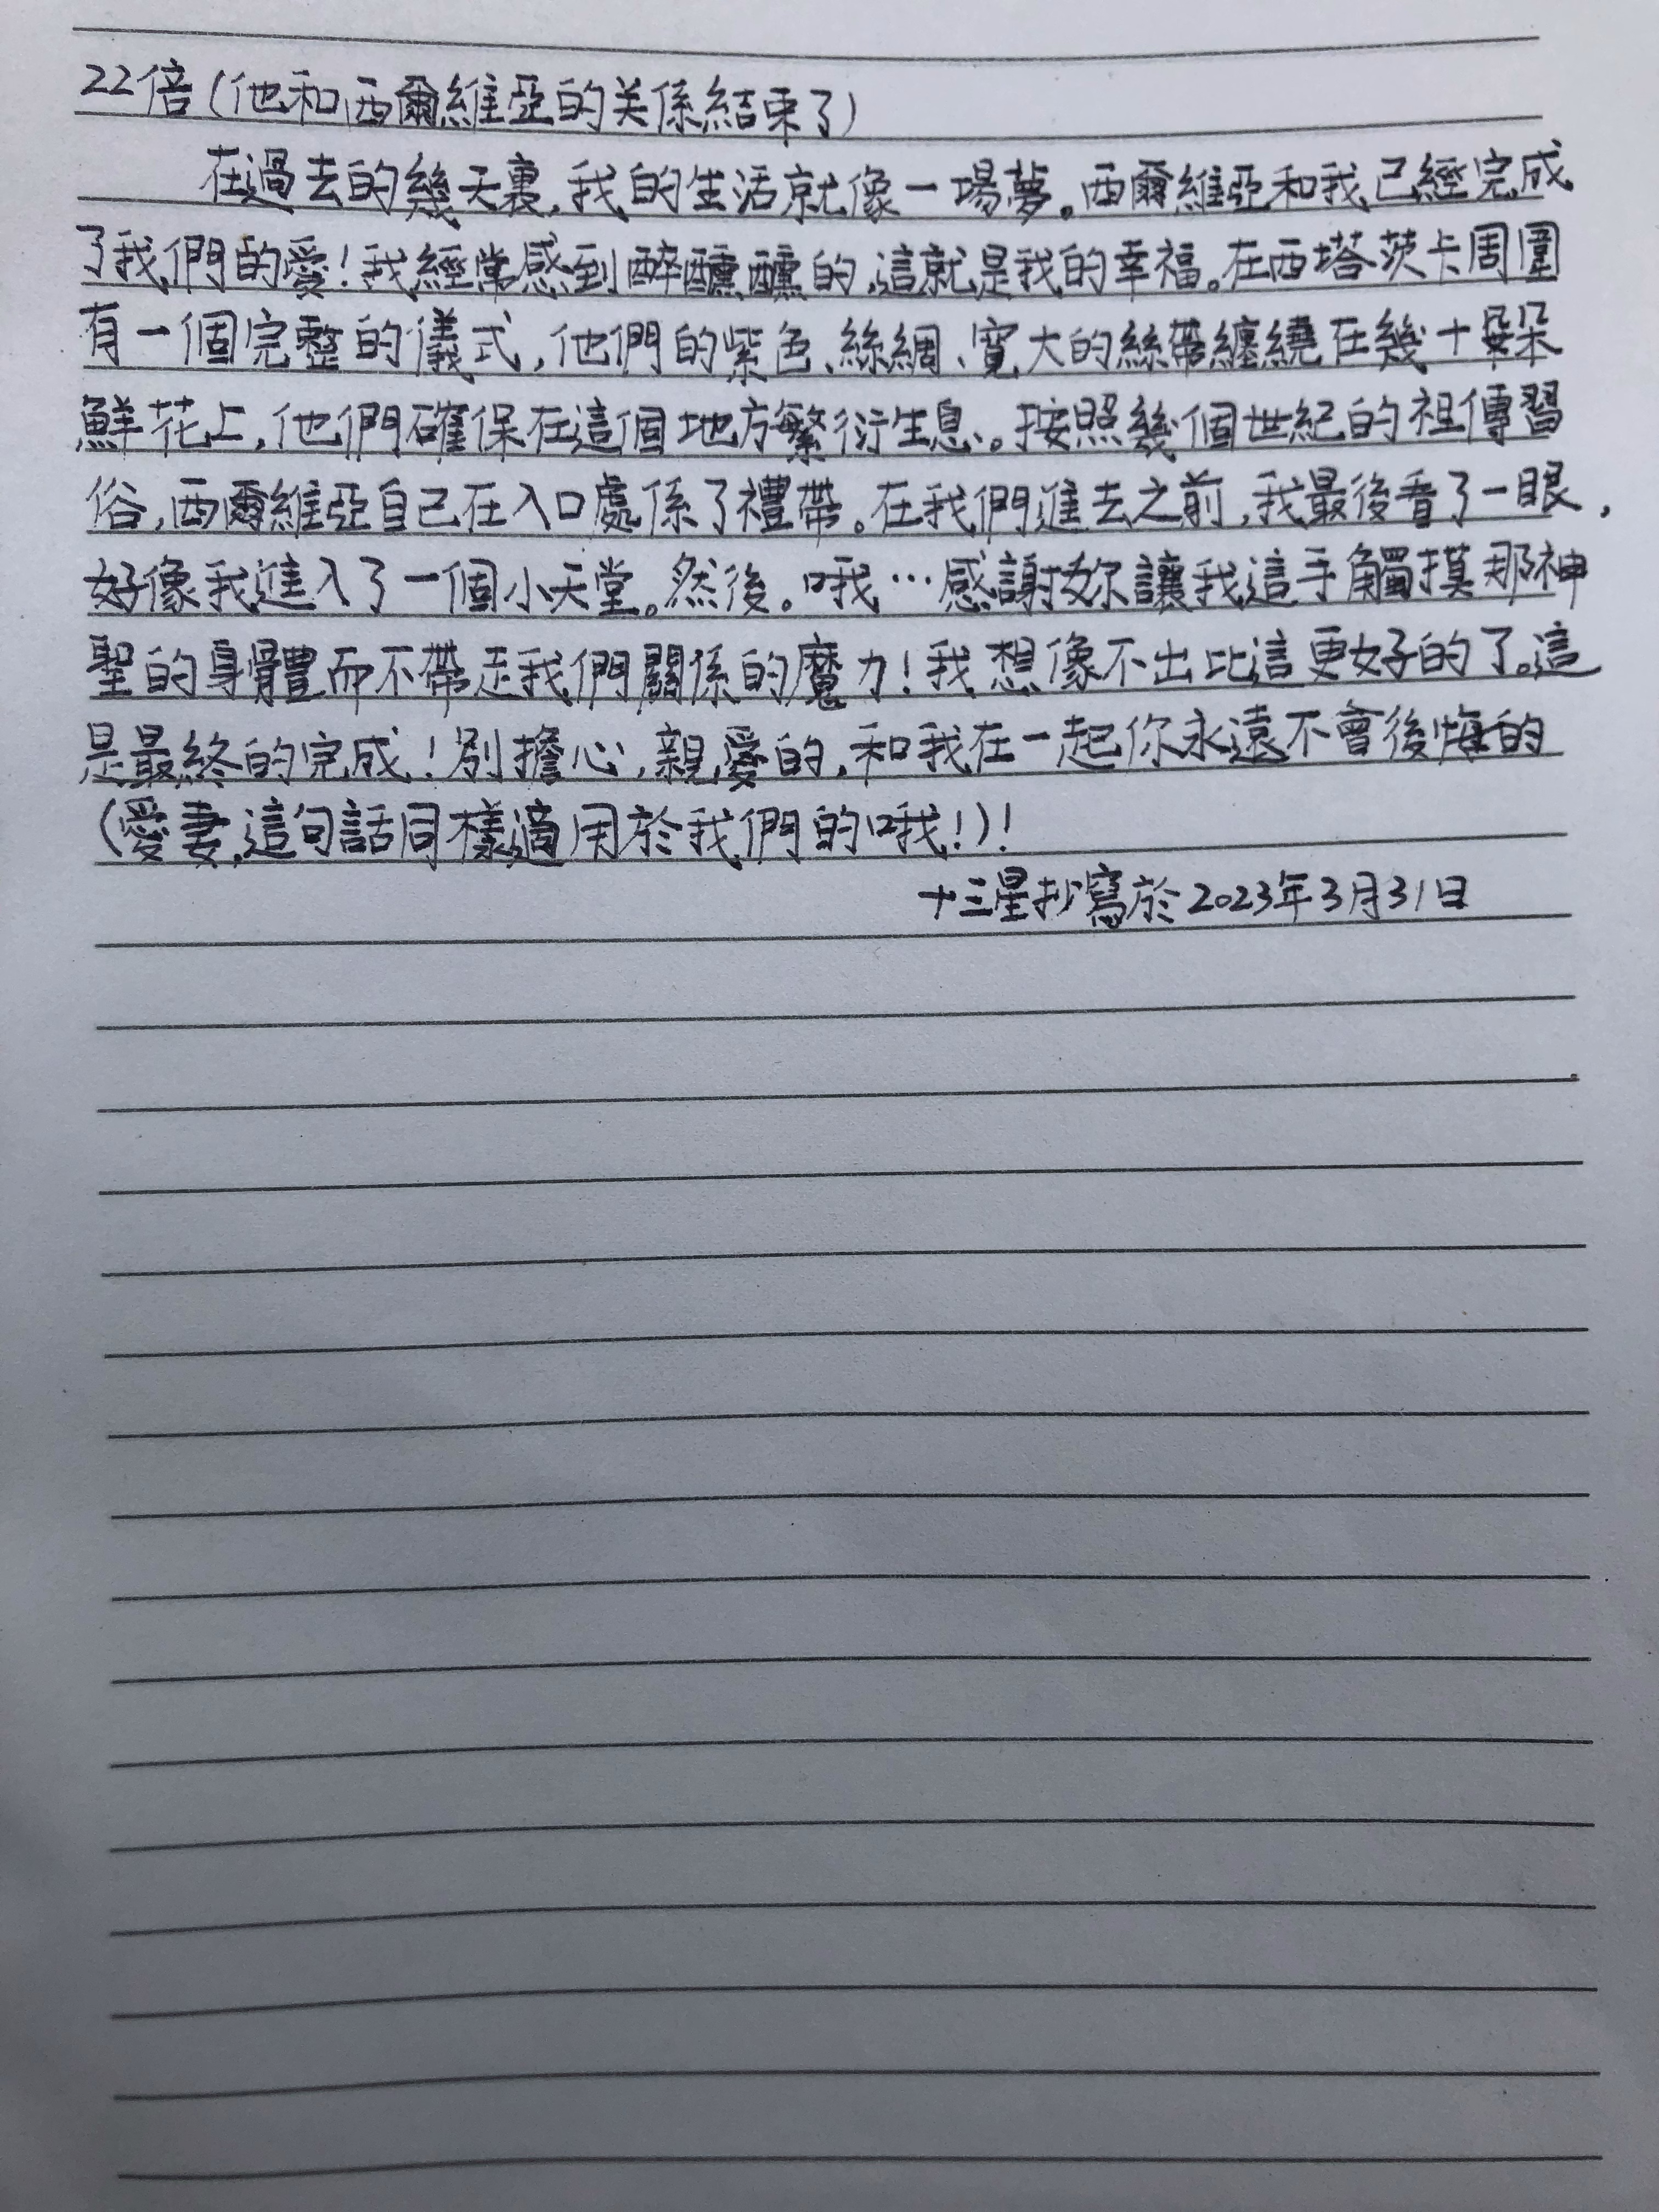 22倍(他和西爾維亞的关係結束了)
在過去的幾天裏,我的生活就像一場夢。西爾維亞和我已經完成
了我們的愛!我經常感到醉醺醺的,這就是我的幸福。在西塔茨卡周圍
有一個完整的儀式,他們的紫色、絲綢、寬大的絲帶纏繞在幾十朵朵
鮮花上,他們確保在這個地方繁衍生息。按照幾個世紀的祖傳習
俗,西爾維亞自己在入口處係了禮帶。在我們進去之前,我最後看了一眼,
好像我進入了一個小天堂。然後。哦…感謝妳讓我這手觸摸那神
聖的身體而不帶走我們關係的魔力!我想像不出比這更好的了。這
是最終的完成!別擔心,親愛的,和我在一起你永遠不會後悔的
(愛妻,這句話同樣適用於我們的哦!)!
十三星抄寫於2023年3月31日